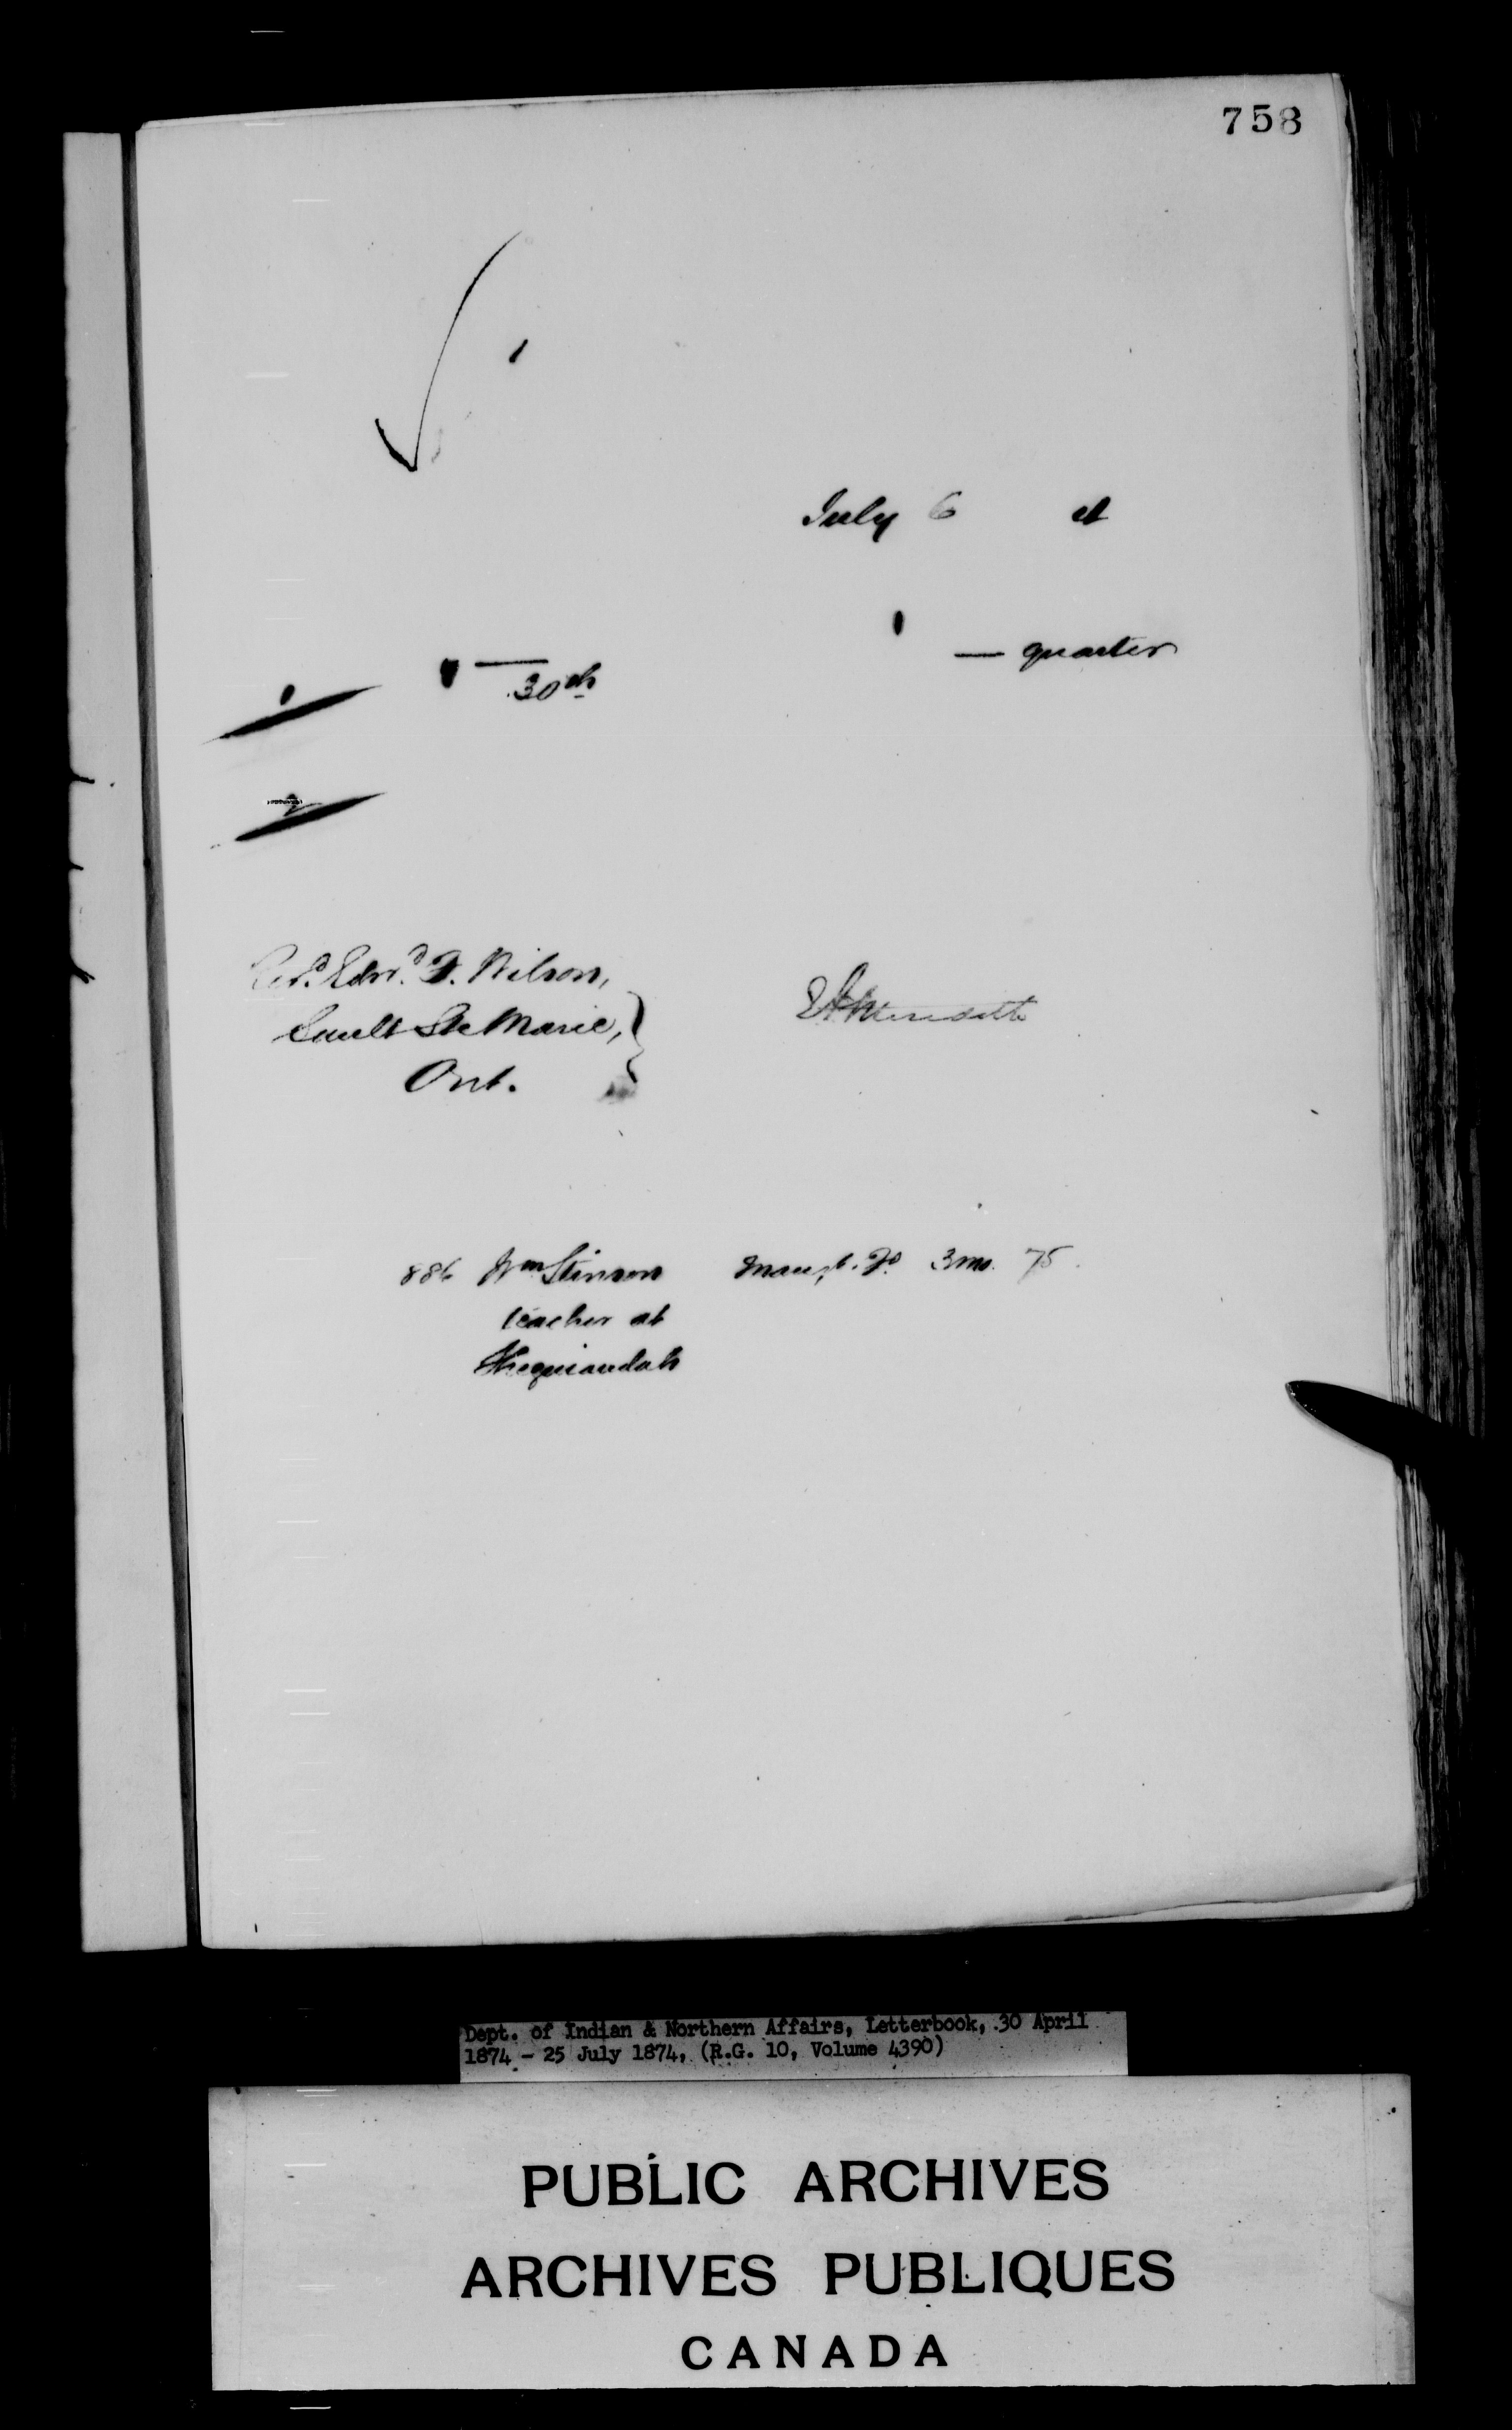 758
July 6 4
1 — quarter
1 — 30th
2
Revd. Edwd. F. Wilson,
Sault Ste Marie,
Ont.
E A Meredith
886 Wm Stinson Mangt. Fd. 3 mo. 75.
teacher at
Sheguiandah
Dept. of Indian & Northern Affairs, Letterbook, 30 April
1874 - 25 July 1874, (R.G. 10, Volume 4390)
PUBLIC ARCHIVES
ARCHIVES PUBLIQUES
CANADA